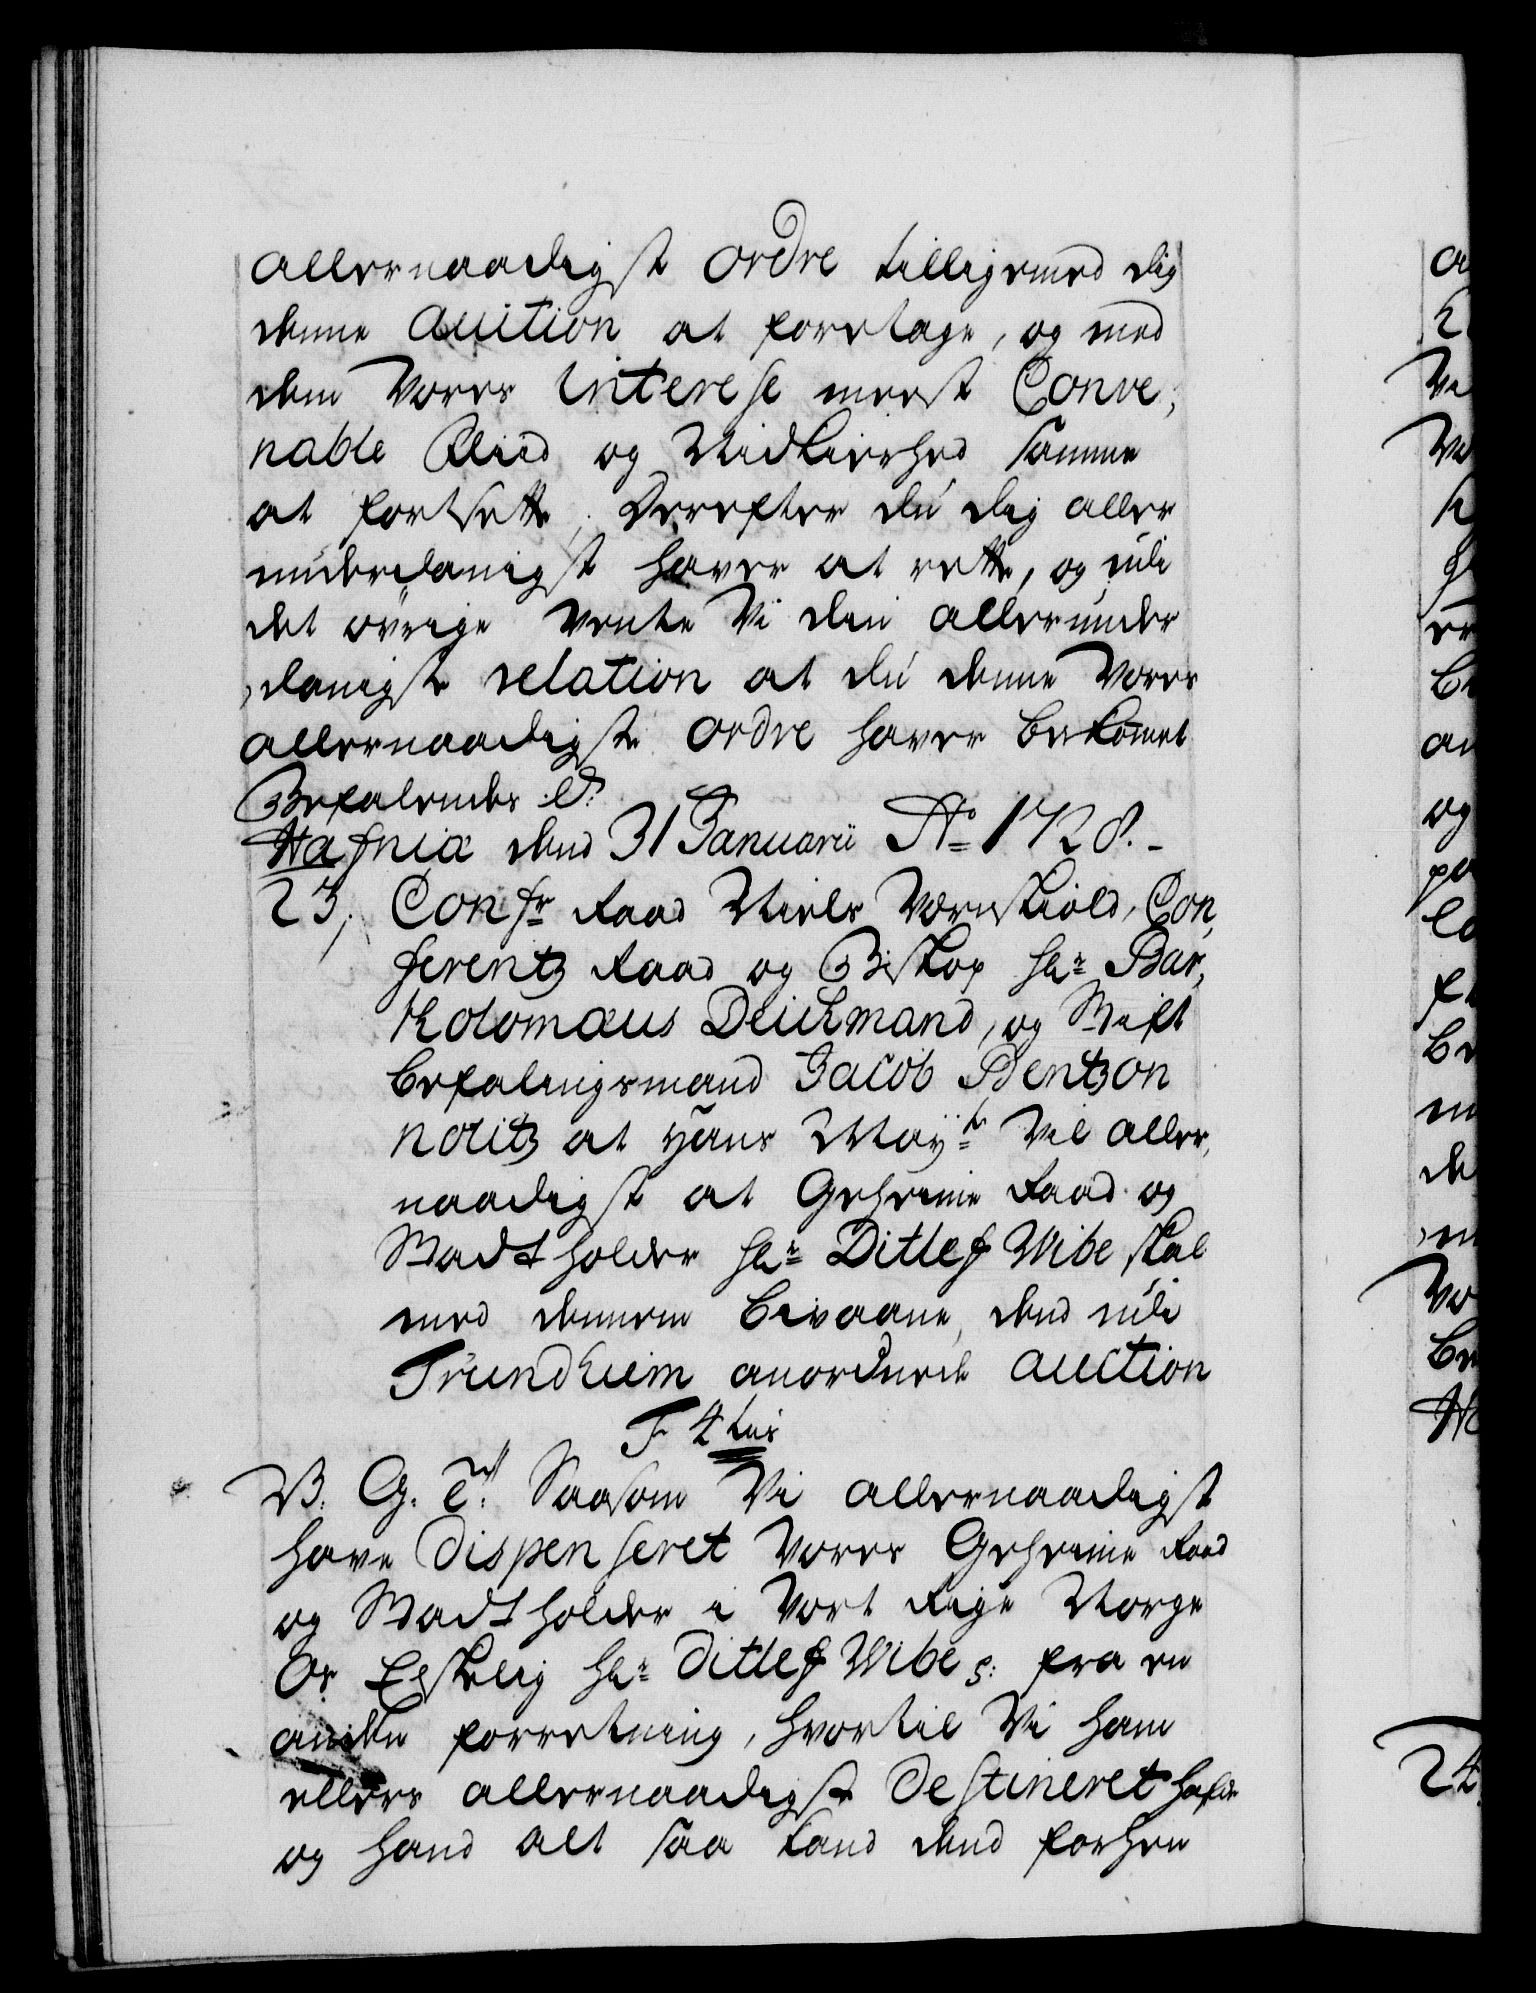 allernaadigst ordre tilligemed dig
denne auction at foretage, og med
den Vores Interese meest Conve,
nable Fliid og Vidtløshed samme
at fortsette. Derefter du dig aller
underdanigst haver at rette, og udi
det øvrige vente Vi din allerunder
danigste relation at du denne Vores
allernaadigste ordre haver bekomet
Befalendes &.
Hafniæ dend 31 Januarii Ao 1728.
23, Confr Raad Niels Wernskiold, Con,
ferentz Raad og Biskop Hr Bar,
tolomæus Deichmand, og Stift
befalingsmand Jacob Bentzon
notitz at Hans Mayts Vil aller,
naadigst at Geheime Raad og
Stadtholder Hr Ditlef Wibe skal
med dennem bivaane, dend udi
Trundhiem anordnede auction
T 4 tis
V. G. T. Saasom Vi allernaadigst
have dispenseret Vores Geheime Raad
og Stadtholder i Vort Rige Norge
Os Elskelig Hr Ditlef Wibe s: fra en
anden forretning, hvortil Vi ham
ellers allernaadigst destineret hafde
og hand alt saa kand dend forhen